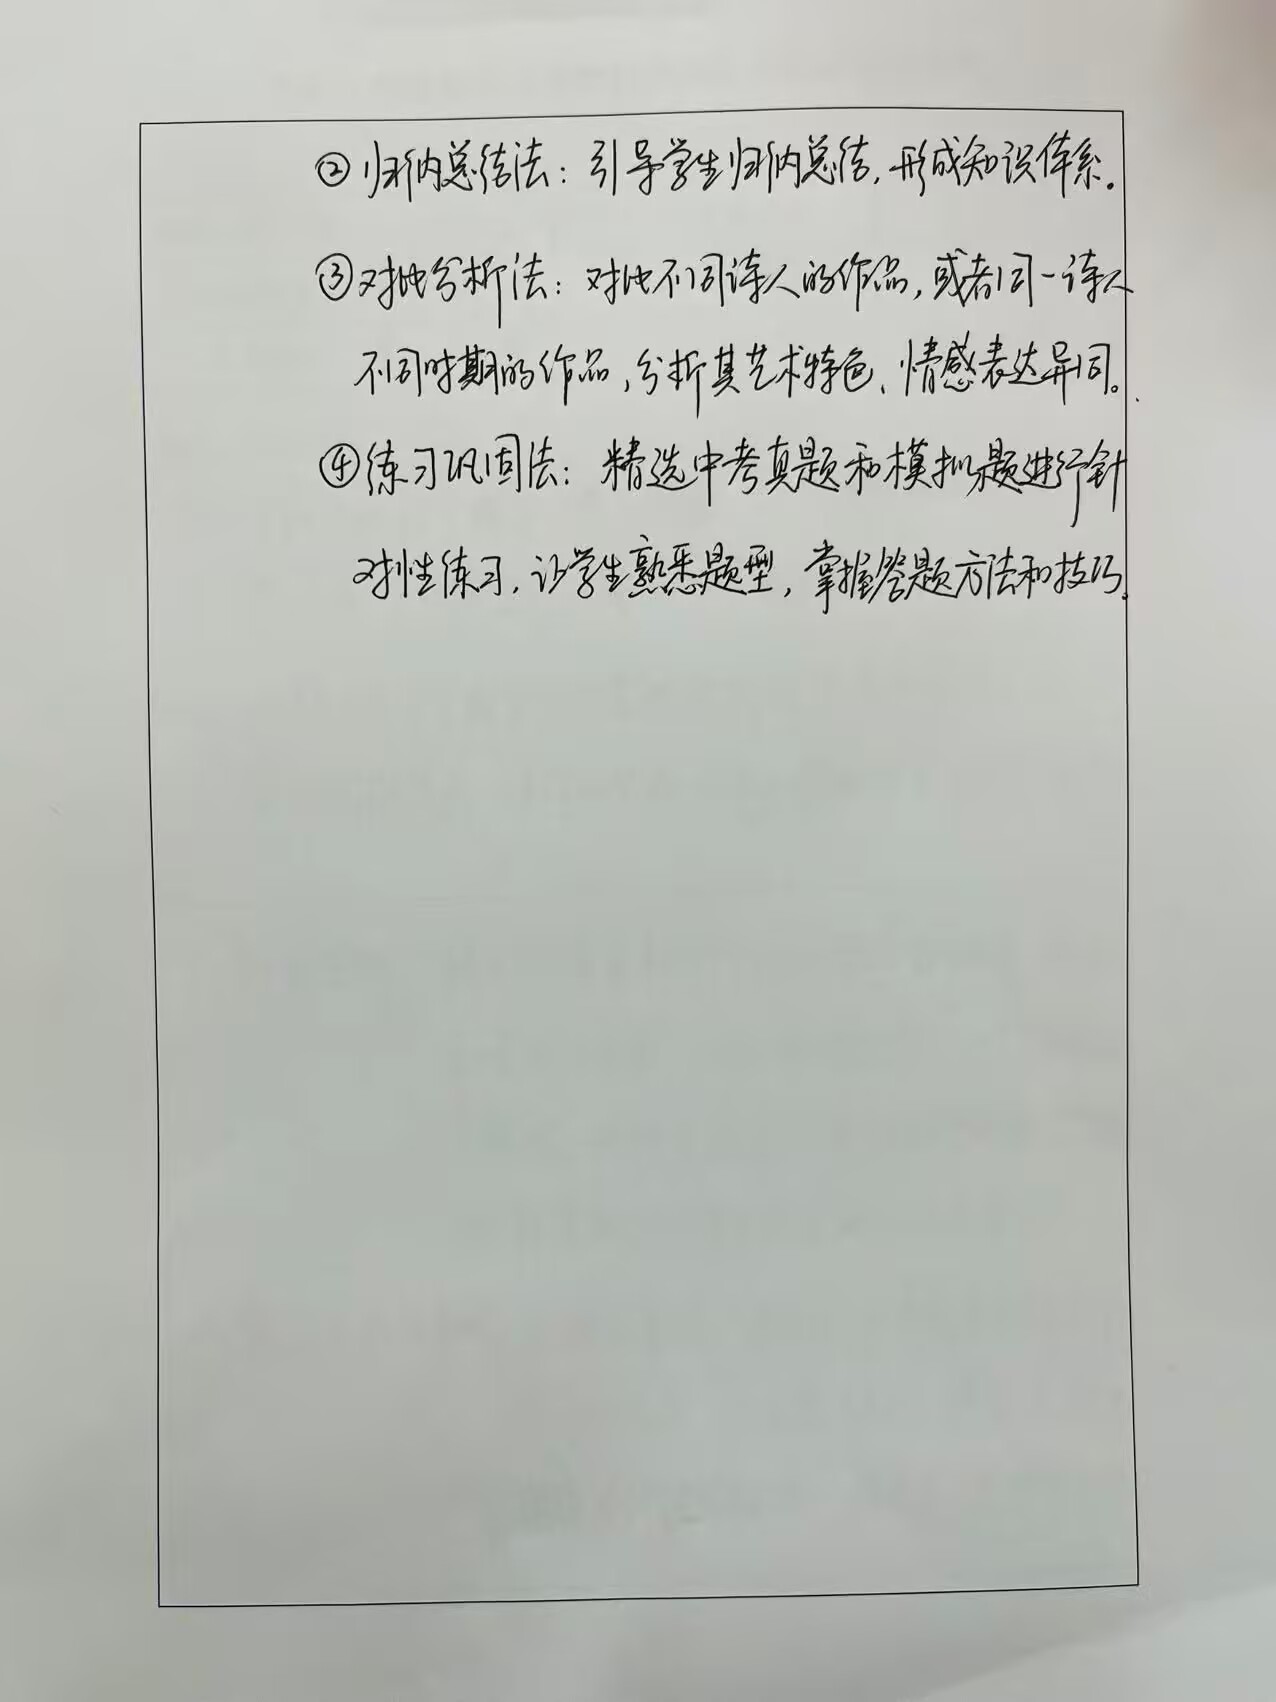 ②归纳总结法：引导学生归纳总结，形成知识体系。
③对比分析法：对比不同诗人的作品，或者同一诗人
不同时期的作品，分析其艺术特色、情感表达异同。
④练习巩固法：精选中考真题和模拟题进行针
对性练习，让学生熟悉题型，掌握答题方法和技巧。